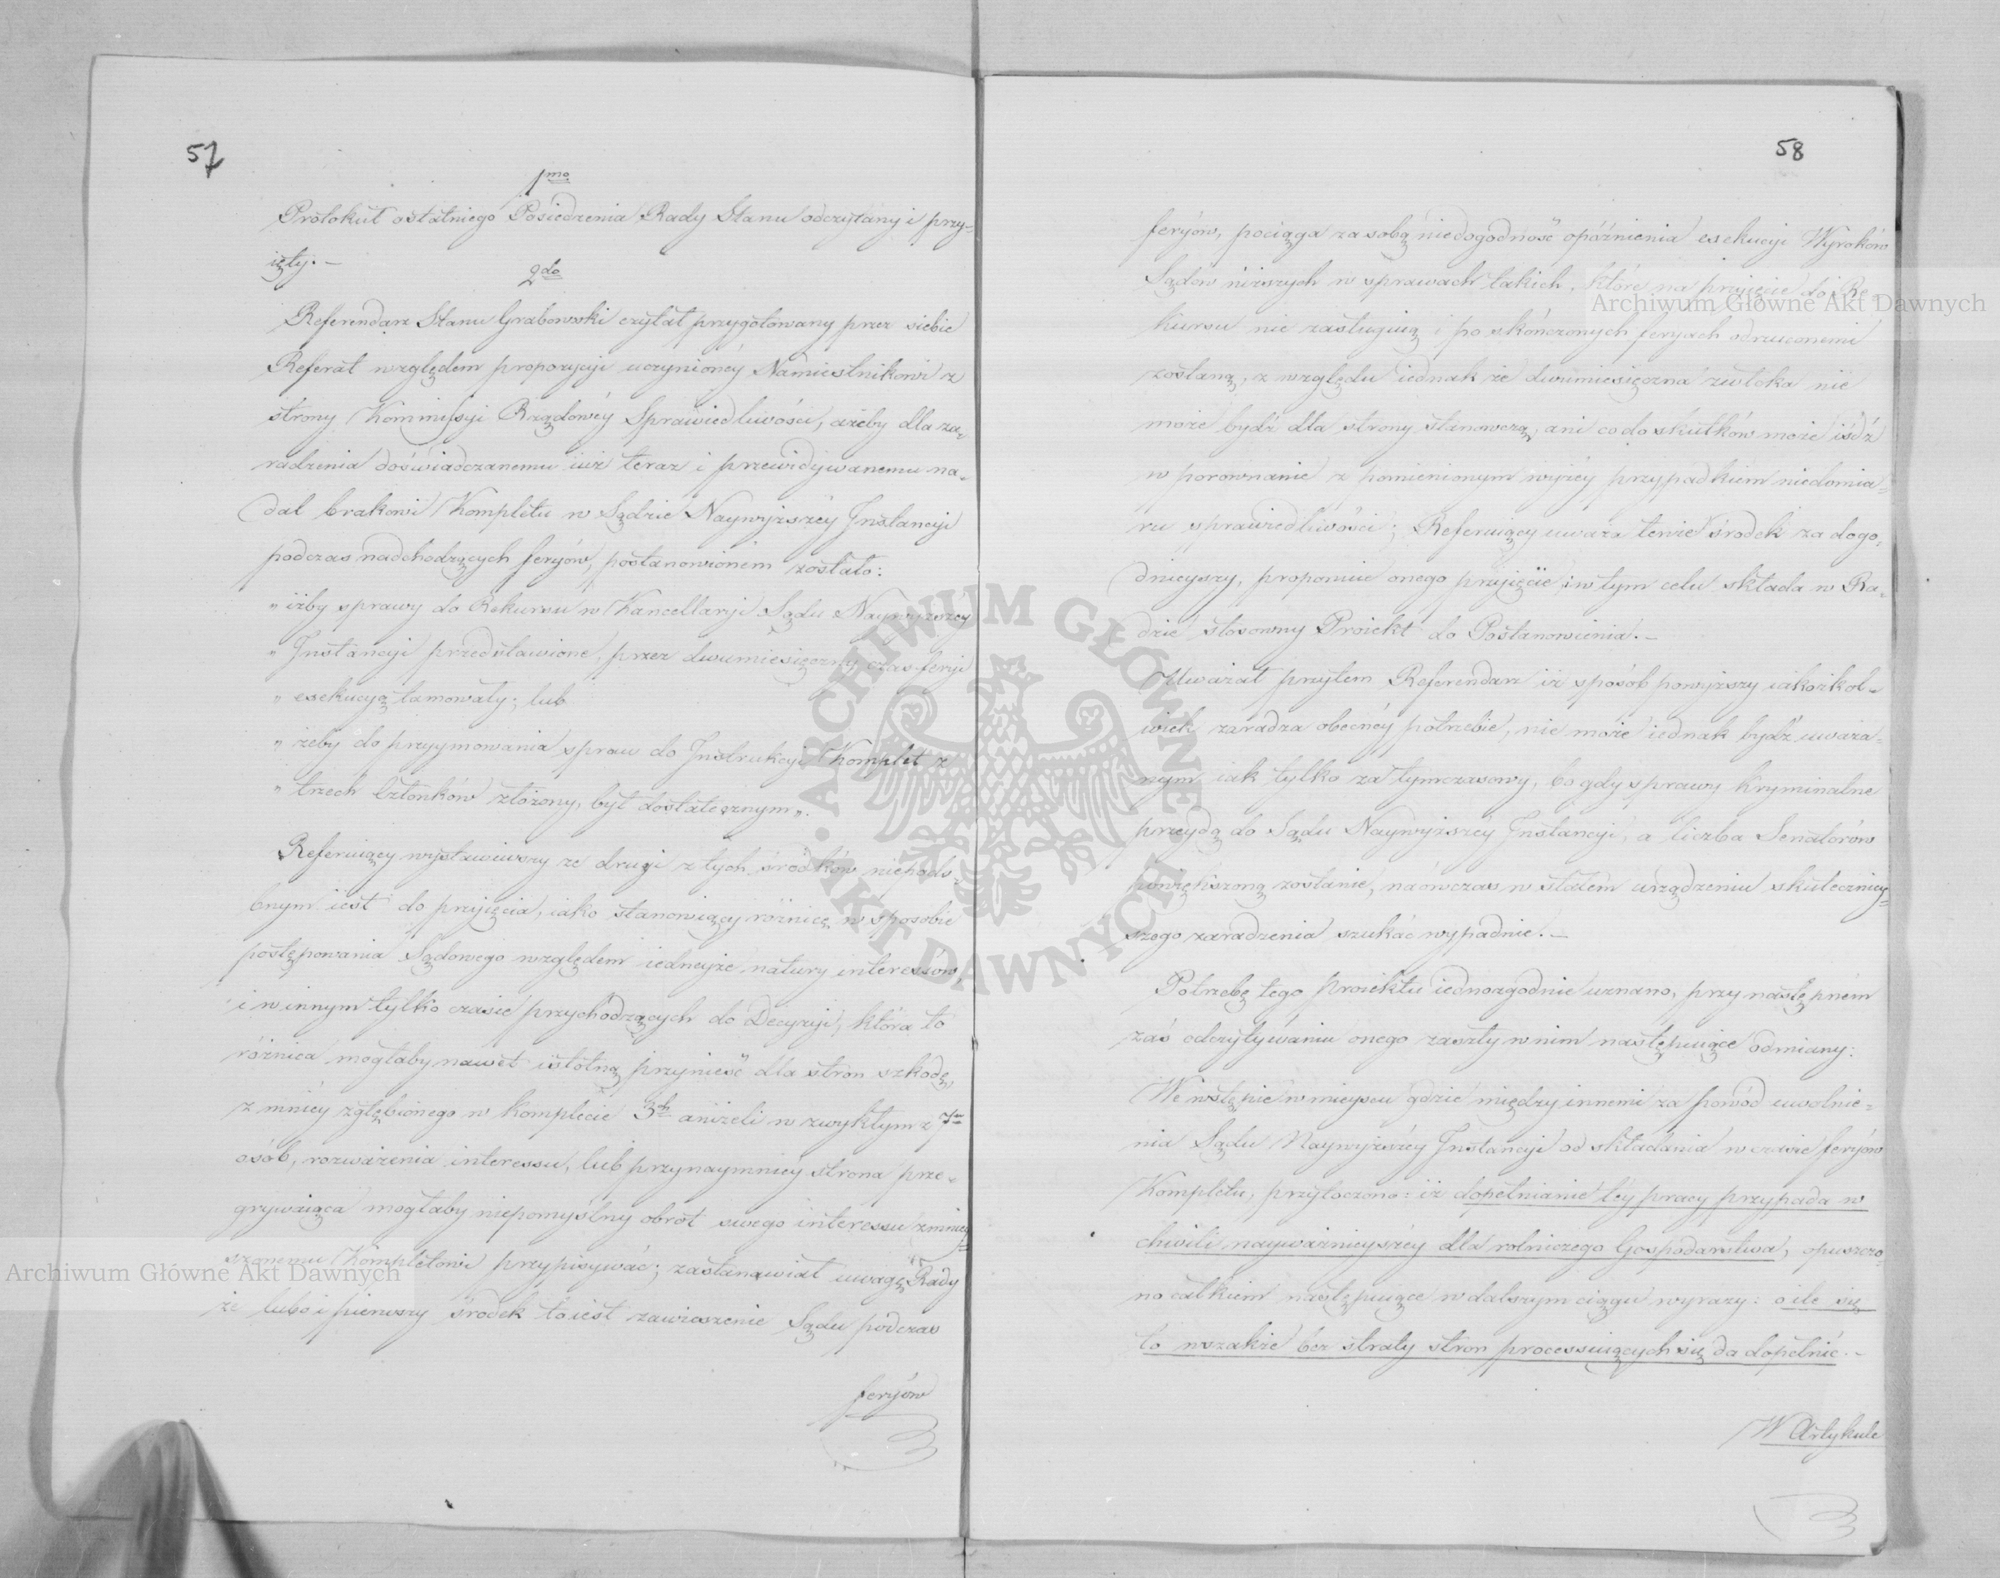 57
1mo
Protokuł ostatniego Posiedzenia Rady Stanu odczytany i przy-
ięty. —
2do
Referendarz Stanu Grabowski czytał przygotowany przez siebie
Referat względem propozycyi uczynionéy Namiestnikowi z
strony Kommissyi Rządowéy Sprawiedliwości, ażeby dla za-
radzenia doświadczanemu iuż teraz i przewidywanemu na-
dal brakowi Kompletu w Sądzie Naywyższéy Instancyi
podczas nadchodzących feryów, postanowioném zostało:
" iżby sprawy do Rekursu w Kancellaryi Sądu Naywyższey
" Instancyi przedstawione, przez dwumiesięczny czas feryi
" exekucyą tamowały; lub
" żeby do przyymowania spraw do Instrukcyi Komplet z
" trzech Członków złożony, był dostatecznym".
Referuiący wystawiwszy że drugi z tych środków niepodo-
bnym iest do przyięcia, iako stanowiący różnicę w sposobie
postępowania Sądowego względem iednéyże natury interessów,
i w innym tylko czasie przychodzących do Decyzyi, która to
różnica mogłaby nawet istotną przynieść dla stron szkodę,
z mniéy zgłębionego w komplecie 3ch aniżeli w zwykłym z 7miu
osób, rozważenia interessu, lub przynaymniéy strona prze-
grywaiąca mogłaby niepomyślny obrót swego interessu zmniey-
szonemu Kompletowi przypisywać; zastanawiał uwagę Rady
że lubo i pierwszy środek to iest zawieszenie Sądu podczas
feryów
58
feryów, pociąga za sobą niedogodność opóźnienia exekucyi Wyroków
Sądów niższych w sprawach takich, które na przyięcie do Re-
kursu nie zasługuią i po skończonych feryach odrzuconemi
zostaną, z względu iednak że dwumiesięczna zwłoka nie
może bydź dla strony stanowczą, ani co do skutków może iśdź
w porównanie z pomienionym wyżéy przypadkiem niedomia-
ru sprawiedliwości; Referuiący uważa tenże środek za dogo-
dnieyszy, proponuie onego przyięcie i w tym celu składa w Ra-
dzie stosowny Proiekt do Postanowienia. —
Uważał przytém Referendarz iż sposób powyższy iakożkol-
wiek zaradza obecnéy potrzebie, nie może iednak bydź uważa-
nym iak tylko za tymczasowy, bo gdy sprawy kryminalne
przeydą do Sądu Naywyższey Instancyi, a liczba Senatorów
powiększoną zostanie, naówczas w stałém urządzeniu skutecznicy-
szego zaradzenia szukać wypadnie. —
Potrzebę tego proiektu iednozgodnie uznano, przy następném
zaś odczytywaniu onego zaszły w nim następuiące odmiany:
We wstępie w mieyscu gdzie między innemi za powód uwolnie-
nia Sądu Naywyższéy Instancyi od składania w czasie feryów
Kompletu, przytoczono: iż dopełnianie téy pracy przypada w
chwili nayważnieyszéy dla rolniczego Gospodarstwa, opuszczo-
no całkiem następuiące w dalszym ciągu wyrazy: o ile się
to wszakże bez straty stron processuiących się da dopełnić. —
W Artykule
Archiwum Główne Akt Dawnych
Archiwum Główne Akt Dawnych
ARCHIWUM GŁÓWNE AKT DAWNYCH